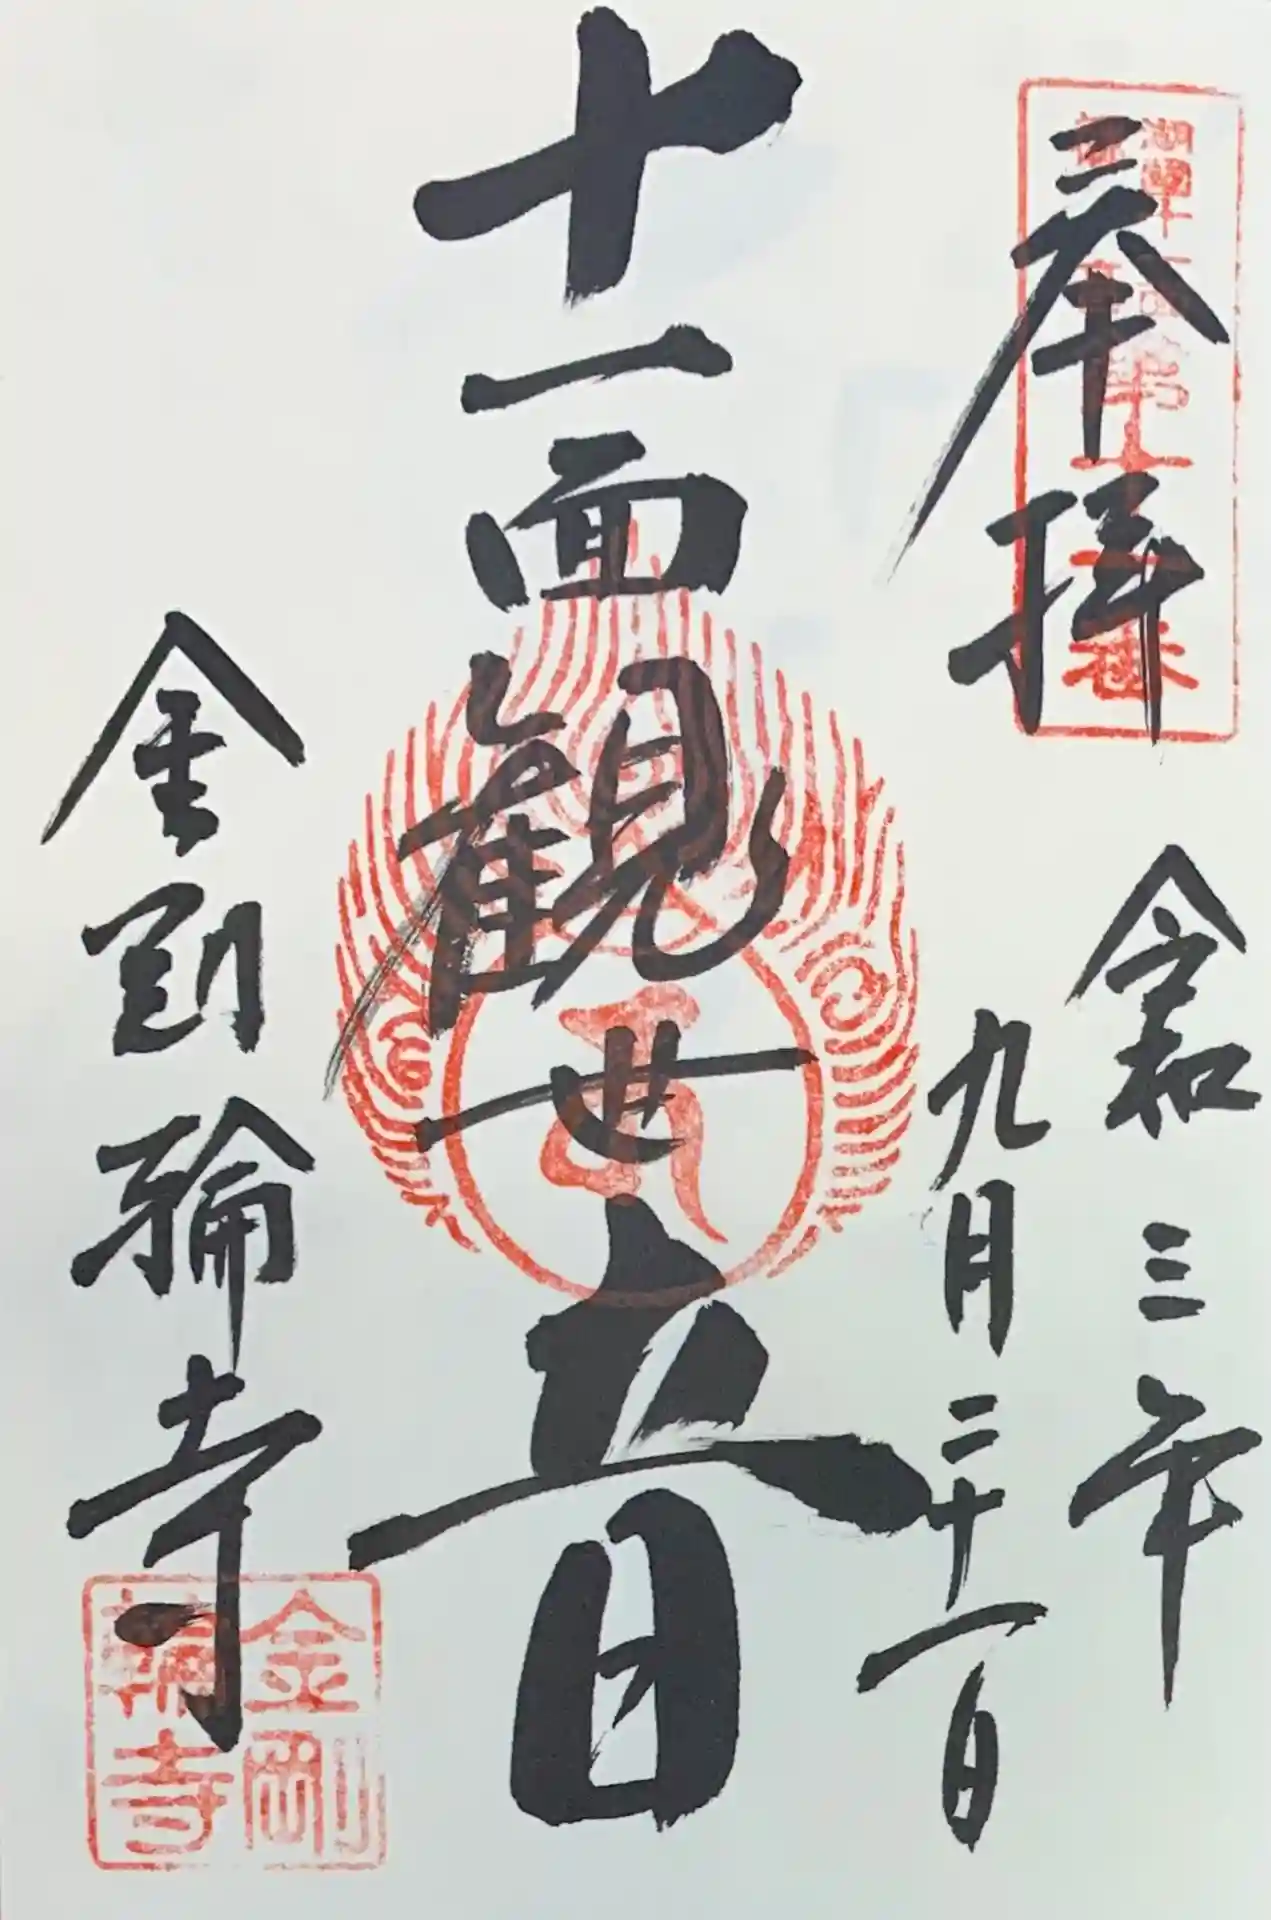 奉拝
令和三年
九月二十一日
十一面観世音
金剛輪寺
金剛
輪寺